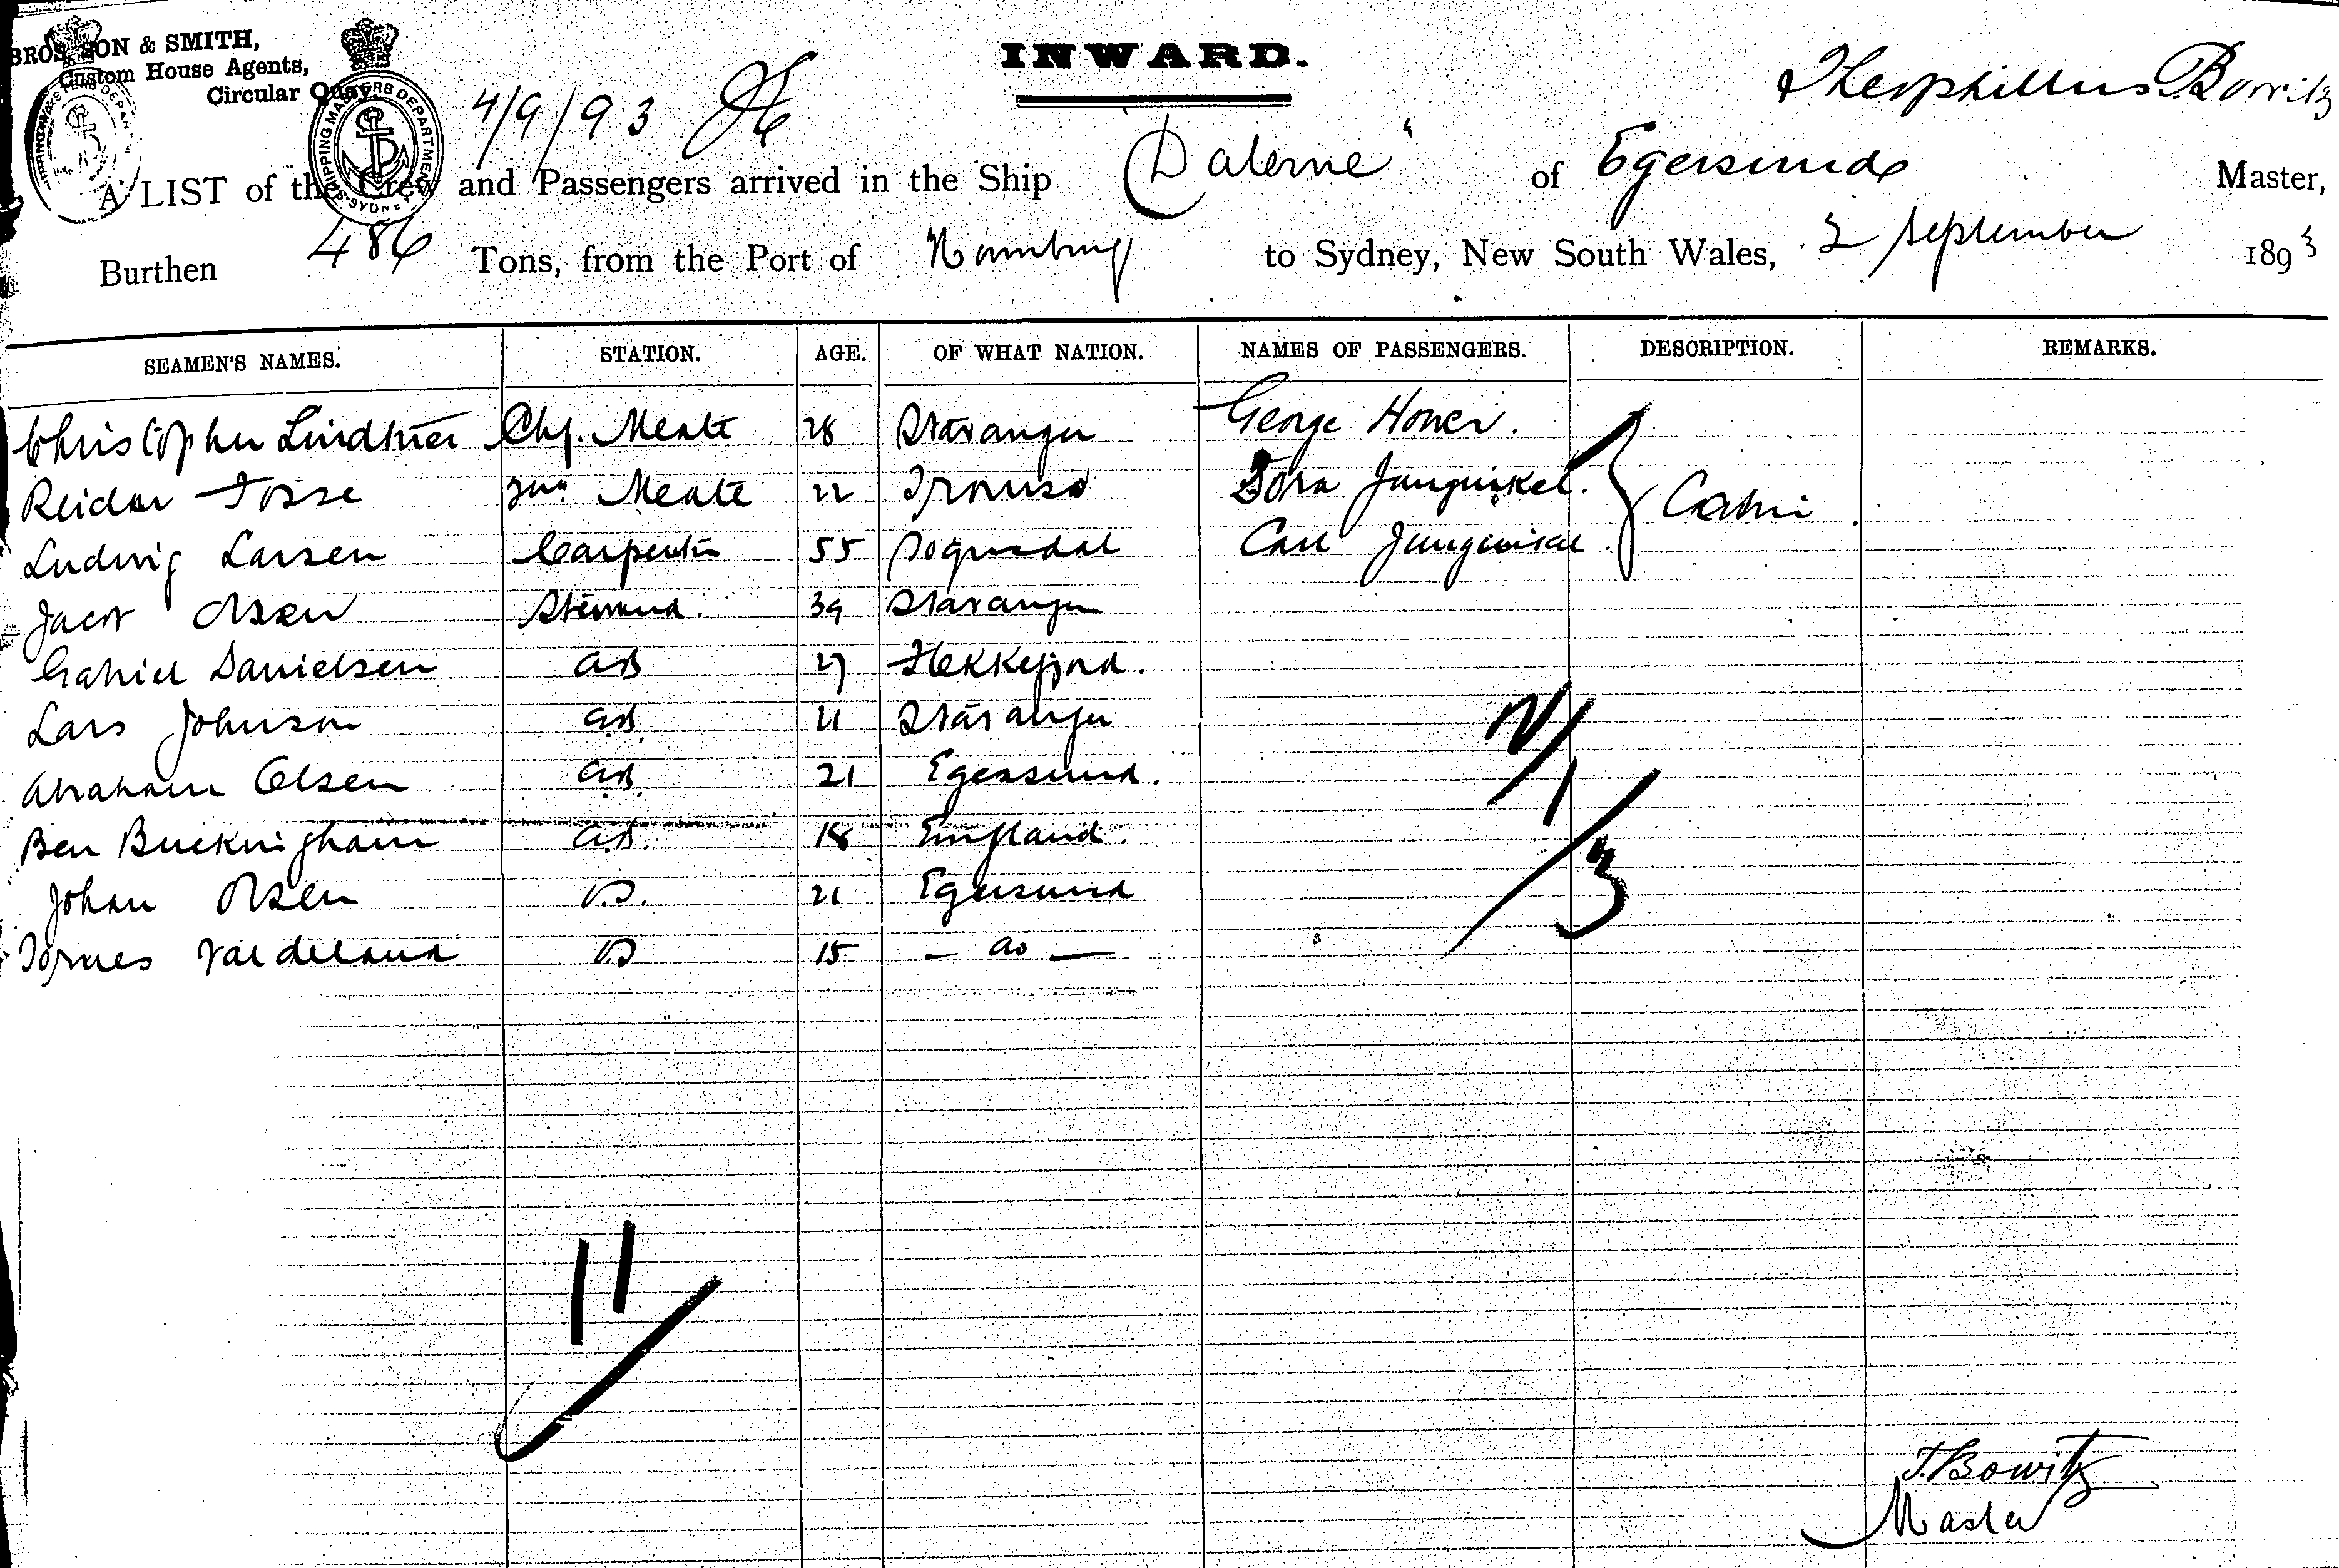 BROS. SON & SMITH,
Custom House Agents,
Circular Quay.
SHIPPING MASTERS DEPARTMENT
SYDNEY
INWARD.
4/9/93
Theophillus Bowitz
A LIST of the Crew and Passengers arrived in the Ship "Dalerne" of Egersund Master,
Burthen 486 Tons, from the Port of Hamburg to Sydney, New South Wales, 2 September 1893
SEAMEN'S NAMES. STATION. AGE. OF WHAT NATION. NAMES OF PASSENGERS. DESCRIPTION. REMARKS.
Christopher Lindtner Chf. Meate 28 Stavanger George Honer.
Reidar Fosse 2nd Meate 22 Tromsö Dora Jungnikel. Cabin
Ludwig Larsen Carpenter 55 Sognsdal Carl
Jacob Olsen 39 Stavanger
Gabriel Danielsen AB 27 Flekkefjord.
Lars Johnson AB. 21 Stavanger
Abraham Olsen AB. 21 Egersund.
Ben Buckingham A.B. 18 England.
Johan Olsen 21 Egersund
Valdeland 15 — do —
1/
/3
11
T. Bowitz
Master